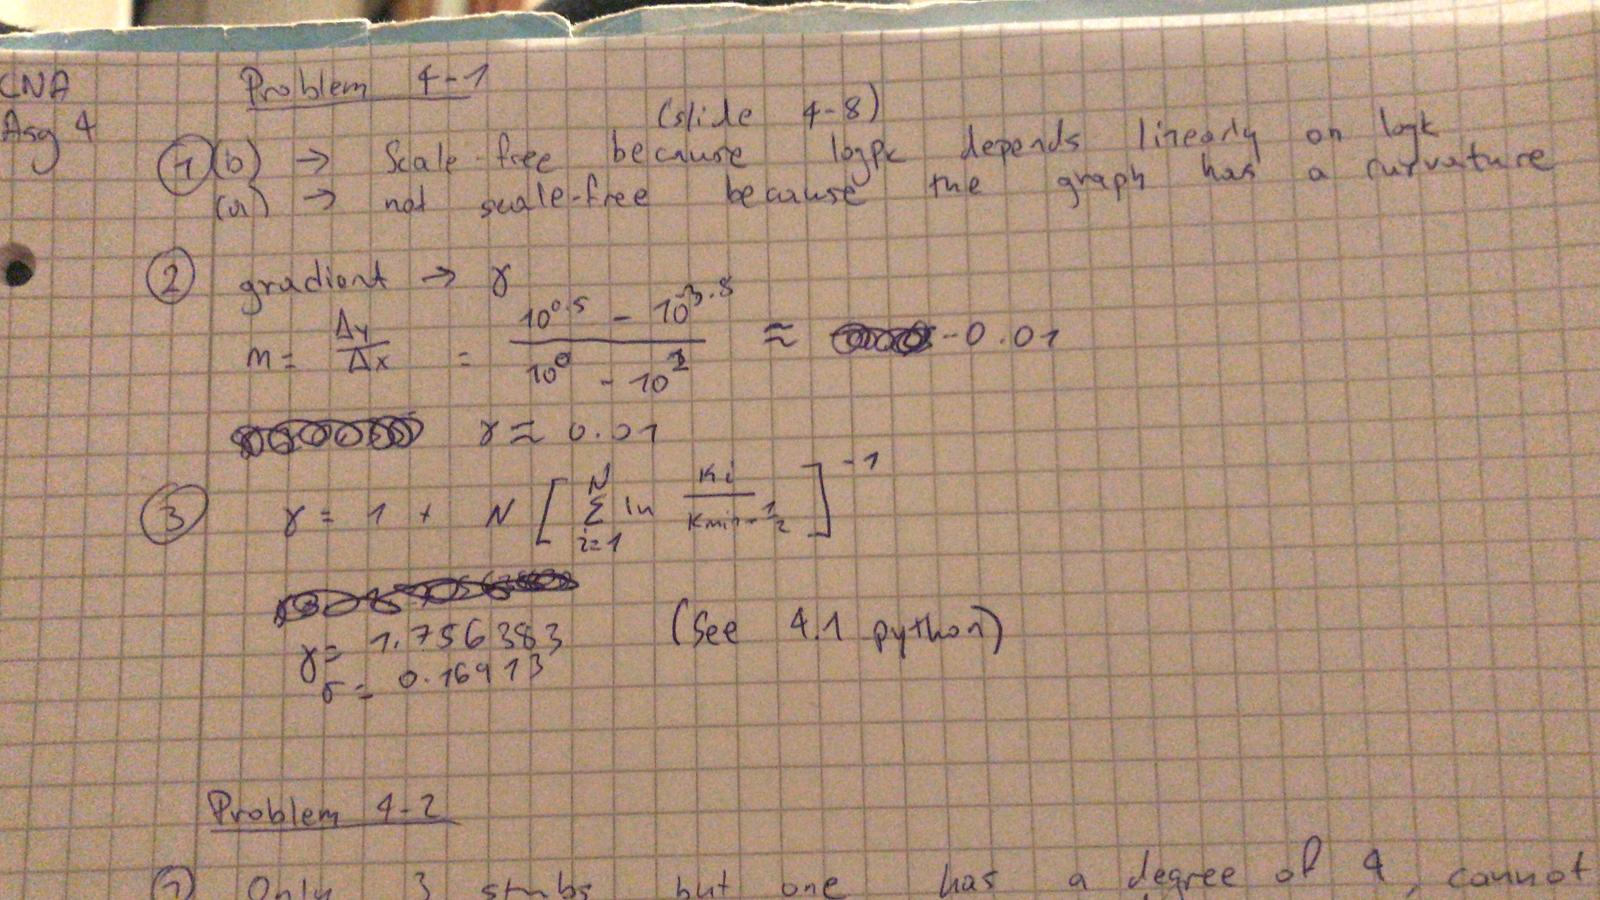 CNA
Asg 4
Problem 4-1
(slide 4-8)
① (b) → Scale-free because logpk depends linearly on logk
(a) → not scale-free because the graph has a curvature
② gradient → γ
m = Δy/Δx = (10^0.5 - 10^-3.8)/(10^0 - 10^2) ≈ -0.01
γ ≈ 0.01
③ γ = 1 + N [ Σ_{i=1}^{N} ln Ki/(Kmin - 1/2) ]^-1
γ = 1.756383 (See 4.1 python)
σ = 0.16913
Problem 4-2
① Only 3 stubs but one has a degree of 4, cannot